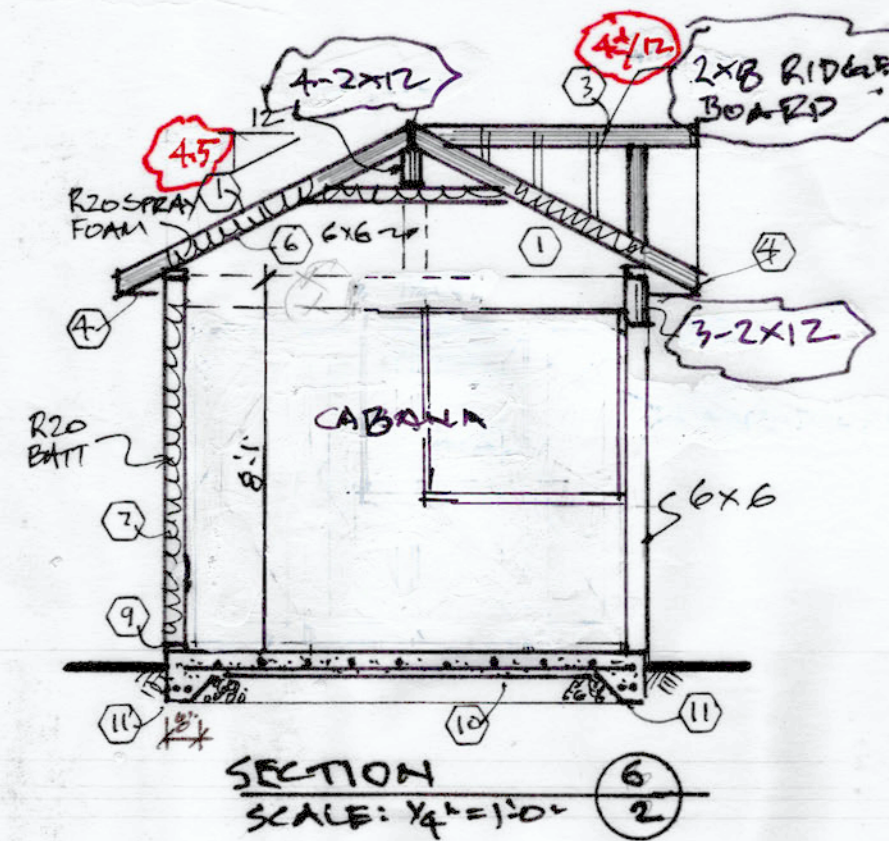 4"/12
4-2x12
3
2x8 RIDGE
BOARD
12
4.5
1
R20 SPRAY
FOAM
6
6x6
1
4
4
3-2x12
CABANA
R20
BATT
8'-1"
6x6
7
9
11
8"
10
11
SECTION
6
SCALE: 1/4" = 1'-0"
2